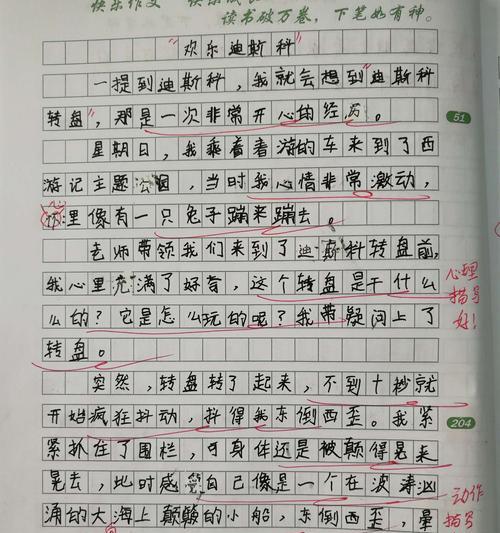 快乐作文 快乐
读书破万卷，下笔如有神。
“欢乐迪斯科”
一提到迪斯科，我就会想到“迪斯科
转盘”，那是一次非常开心的经历。
51
星期日，我乘着春游的车来到了西
游记主题公园，当时我心情非常激动，
心里像有一只兔子蹦来蹦去。
老师带领我们来到了迪斯科转盘前，
我心里充满了好奇，这个转盘是干什么
么的？它是怎么玩的呢？我带疑问上了
心理
描写
好！
转盘。
突然，转盘转了起来，不到十秒就
开始疯狂抖动，抖得我东倒西歪。我紧
204
紧抓住了围栏，可身体还是被颠得晃来
晃去，此时感觉自己像是一个在波涛汹
涌的大海上颠颠的小船，东倒西歪，晕
动作
描写